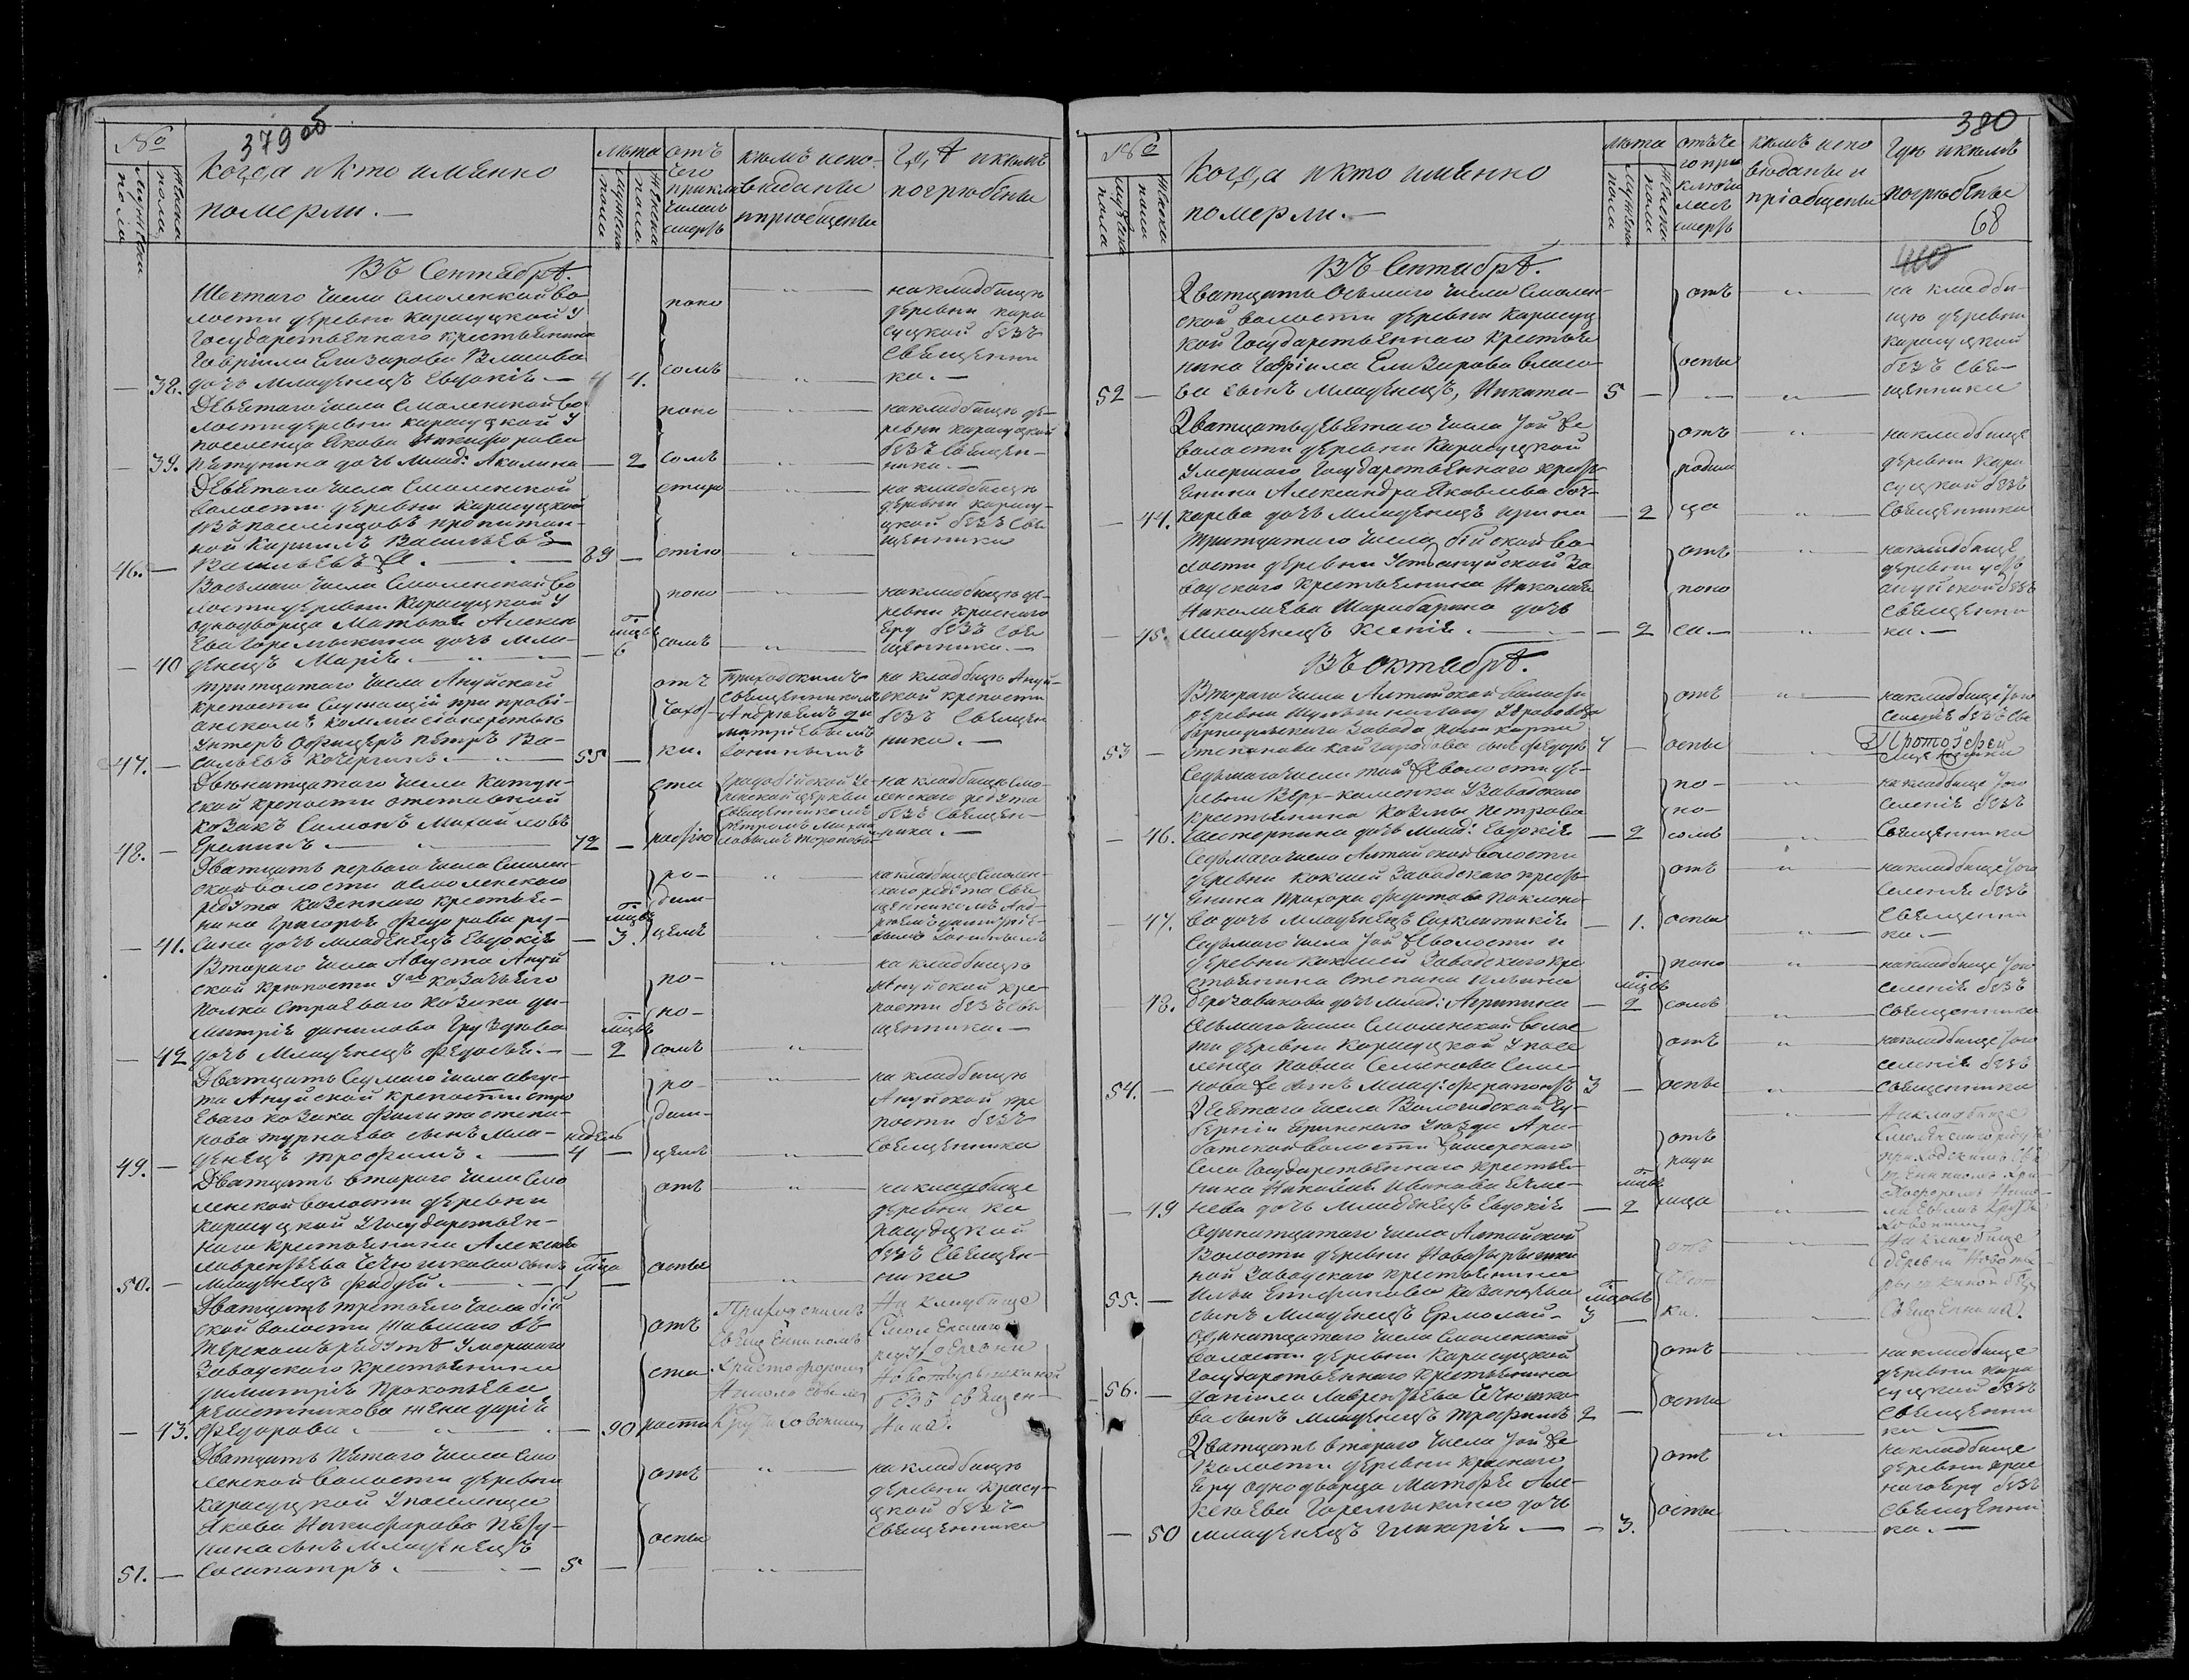 379 об
№
Мужеска пола
Женска пола
Когда и кто имянно
померли.—
Лѣта
Мужеска пола
Женска пола
отъ
чего
приклю
чилась
смерть
кѣмъ испо-
вѣданы
и приобщены
Гдѣ и кѣмъ
погрѣбены
Въ Сентябрѣ.
Шестаго числа Смоленской во
лости деревни Карасуцкой у
Государственнаго крестьянина
Гавріила Елизарова Власова
— 38. дочь младенецъ Евдокія — 4.
поно
сомъ
на кладбищѣ
деревни кара
суцкой безъ
священни
ка.—
Девятаго числа Смоленской во
лости деревни карасуцкой у
поселенца Якова Никифорова
— 39. дочь млад: Акилина — 2
поно
сомъ
на кладбищѣ де-
ревни карасуцкой
безъ священ-
ника.—
Девятаго числа Смоленской
волости деревни Карасуцкой
изъ поселенцовъ пропитан-
ной Кирилъ Васильевъ
46. — Васильевъ же. — 89 —
стара
стію
на кладбищѣ
деревни карасу-
цкой безъ свя
щенника
Восьмаго числа Смоленской во
лости деревни Карасуцкой у
однодворца Матвѣя Алексѣ
ева Горемыкина дочь мла-
— 40 денецъ Марія. — мцвъ 6
поно
сомъ
на кладбищѣ де-
ревни краснаго
Яру безъ свя
щенника.—
Тритцатаго числа Ануйской
крепости служащій при прові-
анскомъ коммисіонерствѣ
Унтеръ Офицеръ Петръ Ва-
47. — сильевъ Кочергинъ. — 55 —
отъ
чахот
ки.
Приходскимъ
священникомъ
Андрѣемъ ди
митріевымъ
на кладбищѣ Ануй-
ской крепости
безъ священ
ника.—
Двѣнатцатаго числа Катун-
ской крепости отставной
козакъ Симонъ Михайловъ
48. — Ереминъ. — 72 —
ста
ростію
Градобійской
церкви
священникомъ
Петромъ
на кладбищѣ Смо-
ленскаго редута
безъ священ-
ника.—
Дватцать перваго числа Смолен-
ской волости Смоленскаго
редута казеннаго крестья-
нина Григорья Федорова ру-
— 41. сина дочь младенецъ Евдокія — мцвъ 3.
ро-
дим-
цемъ
на кладбищѣ Смолен-
скаго редута свя
щенникомъ Анд-
рѣемъ димитріе-
вымъ
Втораго числа Августа Ануй
ской крѣпости 9го козачьяго
полка строеваго козака ди-
митрія данилова Груздева
— 42 дочь младенецъ Федосья.— — мцвъ 2
по-
но-
сомъ
на кладбищѣ
Ануйской кре-
пости безъ свя
щенника.—
Дватцать седмаго числа авгус-
та Ануйской крепости стро
еваго козака Филипа степа-
нова сынъ мла-
49. — денецъ трофимъ. — недель 4 —
ро-
дим-
цемъ
на кладбищѣ
Ануйской кре
пости безъ
священника
Дватцать втораго числа смо
ленской волости деревни
карасуцкой у государствен-
наго крестьянина Алексѣя
Лаврентьева сынъ
50. — младенецъ Фадѣй. — мца 1 —
отъ
оспы
на кладбище
деревни ка
расуцкой
безъ священ-
ника
Дватцать третьяго числа бій
ской волости
редутѣ умершаго
Заводскаго крестьянина
димитрія Прокопьева
решетникова жена дарія
— 43. Федорова. — 90
отъ
ста
рости
Приходскимъ
священникомъ
Христофоромъ
На кладбище
Смоленскаго
редута деревни
безъ священ-
ника.
Дватцать пятаго числа смо
ленской волости деревни
карасуцкой у поселенца
Якова Никифорова
сынъ младенецъ
51. — Сосипатръ. — 5 —
отъ
оспы
на кладбищѣ
деревни Карасу-
цкой безъ
священника
380
№
Мужеска пола
Женска пола
Когда и кто имянно
померли.—
Лѣта
Мужеска пола
Женска пола
отъ че
го при
ключи
лась
смерть
кѣмъ испо
вѣданы и
пріобщены
Гдѣ и кѣмъ
погрѣбены
68
Въ Сентябрѣ.
Дватцать осьмаго числа Смолен-
ской волости деревни Карасуц
кой Государственнаго крестья
нина Гавріила Елизарова власо-
52 — ва сынъ младенецъ, Никита — 5 —
отъ
оспы
на кладби-
щѣ деревни
карасуцкой
безъ свя-
щенника
Дватцать девятаго числа той же
волости деревни Карасуцкой
умершаго Государственнаго крест
янина Александра Яковлева боч-
— 44. карева дочь младенецъ ирина — 2
отъ
родим
ца
на кладбище
деревни кара
суцкой безъ
священника
Тритцатаго числа бійской во
лости деревни Устьануйской за
водскаго крестьянина Николая
Николаева Шарабарина дочь
— 45. младенецъ Ксенія. — 2
отъ
поно
са.—
на кладбище
деревни усть
ануйской безъ
священни
ка.—
Въ октябрѣ.
Втораго числа Алтайской волости
53 — Степанова сынъ Федоръ 4 —
отъ
оспы
на кладбище того
селенія безъ свя
Протоіерей
Седмаго числа той же волости де-
ревни Верх-каменки у заводскаго
крестьянина Козмы Петрова
— 46. Шестернина дочь млад: Евдокія — 2
по-
но-
сомъ
на кладбище того
селенія безъ
священника
Седмаго числа Алтайской волости
деревни кокшей Заводскаго кресть
янина Прохора Федотова Поклоно-
— 47. ва дочь младенецъ — 1.
отъ
оспы
на кладбище того
селенія безъ
священни
ка.—
Седмаго числа той же волости и
деревни кокшей Заводскаго кре
стьянина степана ильина
— 48. дочь млад: Агрипина — мцвъ 2
поно
сомъ
на кладбище того
селенія безъ
священника
Осьмаго числа Смоленской волос
ти деревни Карасуцкой у посе
ленца Павла Семенова Семе-
54. — нова же сынъ млад: Ферапонтъ 3 —
отъ
оспы
на кладбище того
селенія безъ
священника
Десятаго числа Вологодской гу-
берніи
села Государственнаго крестья-
нина Николая Иванова
— 49 нева дочь младенецъ Евдокія — мцвъ 2
отъ
роди
мца
На кладбище
Смоленскаго редута
приходскимъ свя
щенникомъ Хри-
стофоромъ
Одинатцатаго числа Алтайской
волости деревни Новотырышки
ной Заводскаго крестьянина
Ильи Епифанова Казанцева
55. — сынъ младенецъ Ермолай — мцовъ 3 —
отъ
На кладбище
деревни Новоты
рышкиной безъ
священника.
Одинатцатаго числа Смоленской
волости деревни Карасуцкой
Государственнаго крестьянина
56. — даніила Лаврентьева
ва сынъ младенецъ трофимъ 2 —
отъ
оспы
на кладбище
деревни кара
суцкой безъ
священни
ка —
Дватцать втораго числа той же
волости деревни краснаго
Яру однодворца Матфѣя Але-
ксѣева Горемыкина дочь
— 50 младенецъ Гликерія.— — 3.
отъ
оспы
на кладбище
деревни крас
наго Яру безъ
священни
ка.—